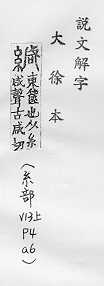 說文解字
大徐本
緘 束篋也从糸
咸聲古咸切
（糸部
V13上
P4
a6）